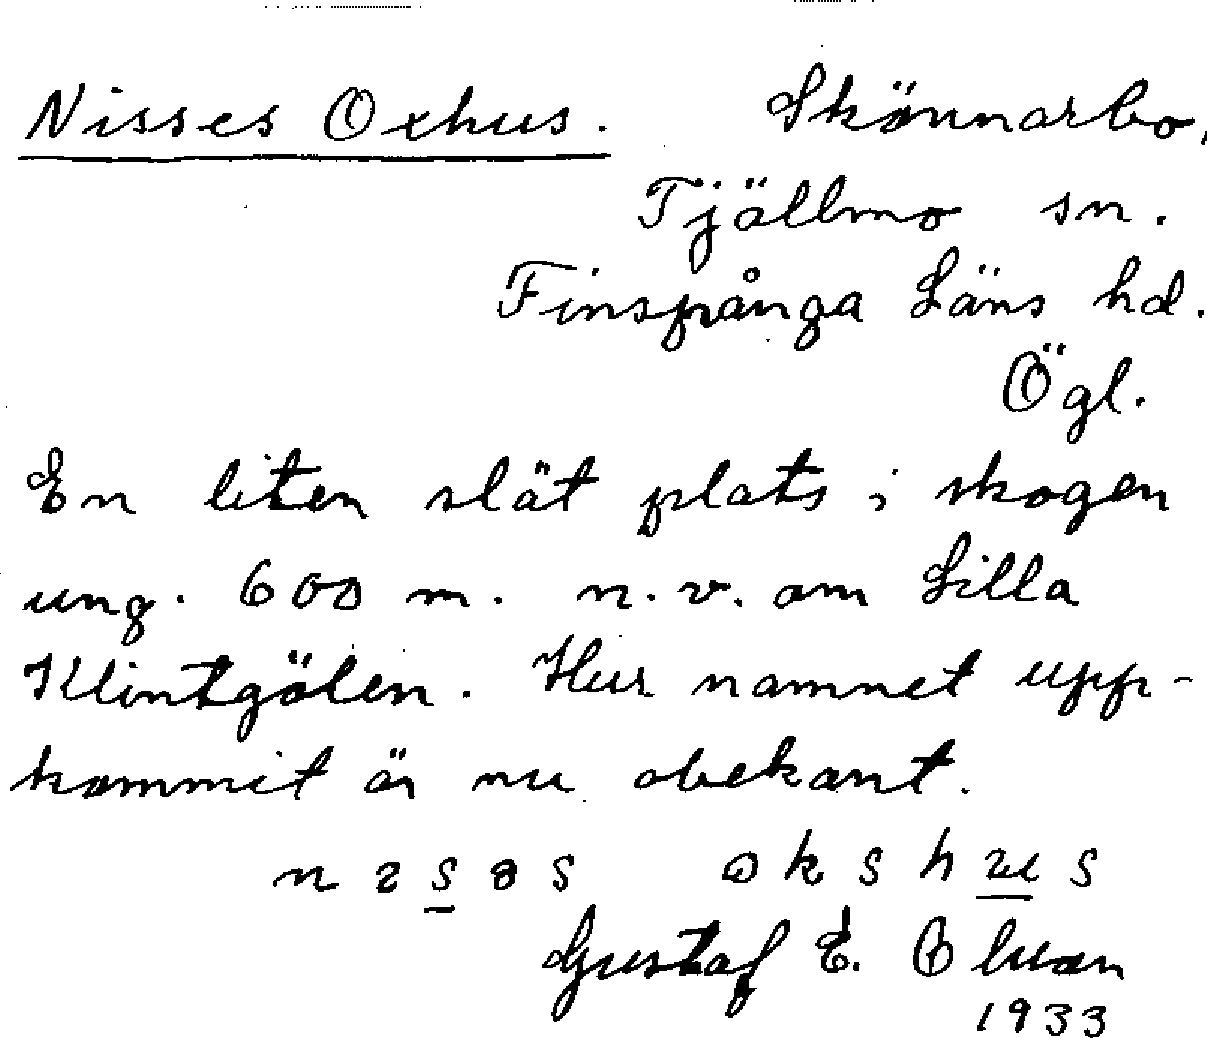 Nisses Oxhus. Skönnarbo,
Tjällmo sn.
Finspånga Läns hd.
Ögl.
En liten slät plats i skogen
ung. 600 m. n.v. om Lilla
Klintgölen. Hur namnet upp-
kommit är nu obekant.
Gustaf E.
1933